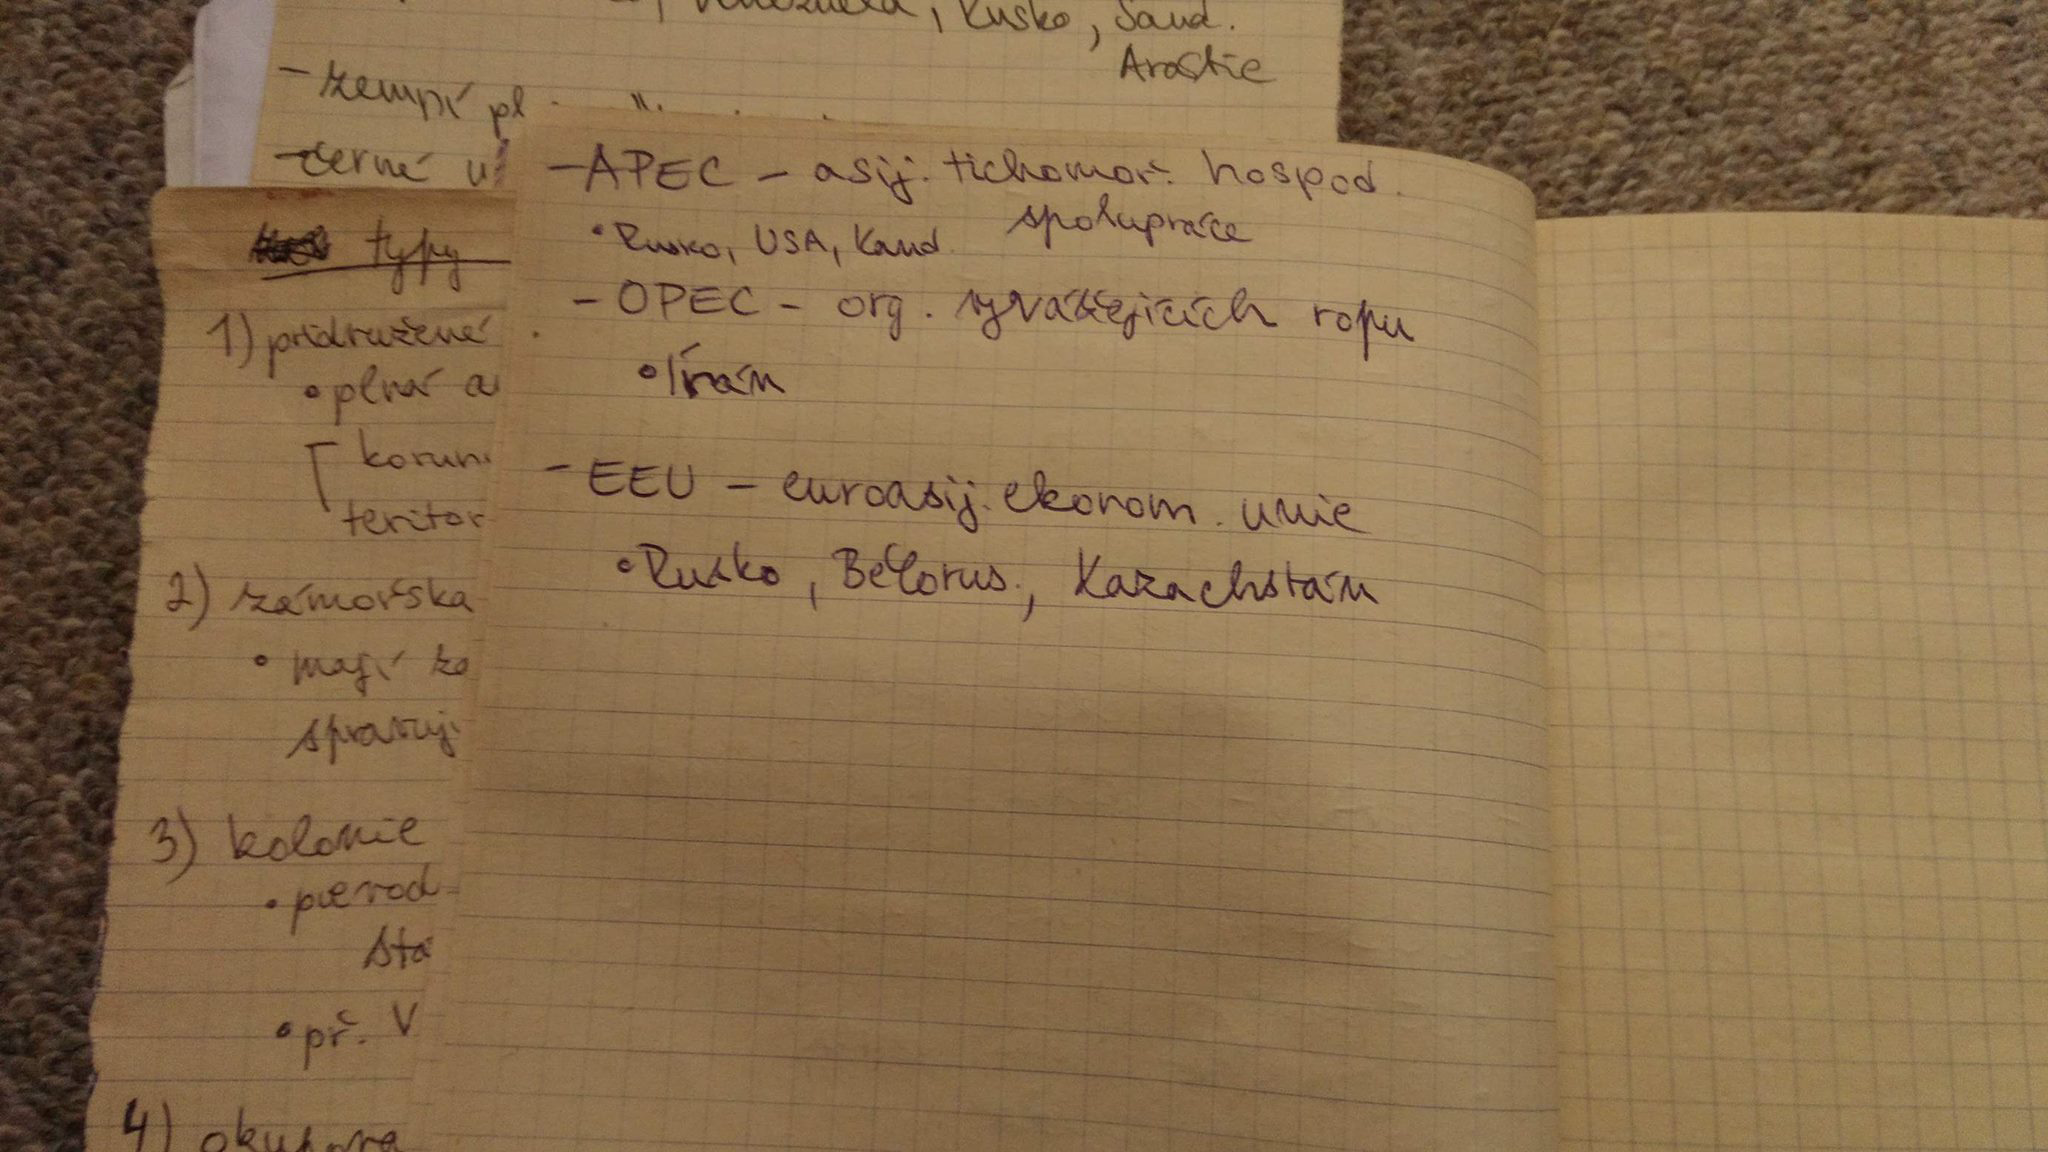 Venezuela, Rusko, Saud.
Arábie
- zemní pl
- černé u
typy
1) přidružené
• plná a
korun
teritor
2) zámořská
• mají
spravuj
3) kolonie
• původ
stá
• př. V
4) okupova
- APEC - asij. tichomoř. hospod.
spolupráce
• Rusko, USA, Kanad.
- OPEC - org. vyvážejících ropu
• Írán
- EEU - euroasij. ekonom. unie
• Rusko, Bělorus., Kazachstán